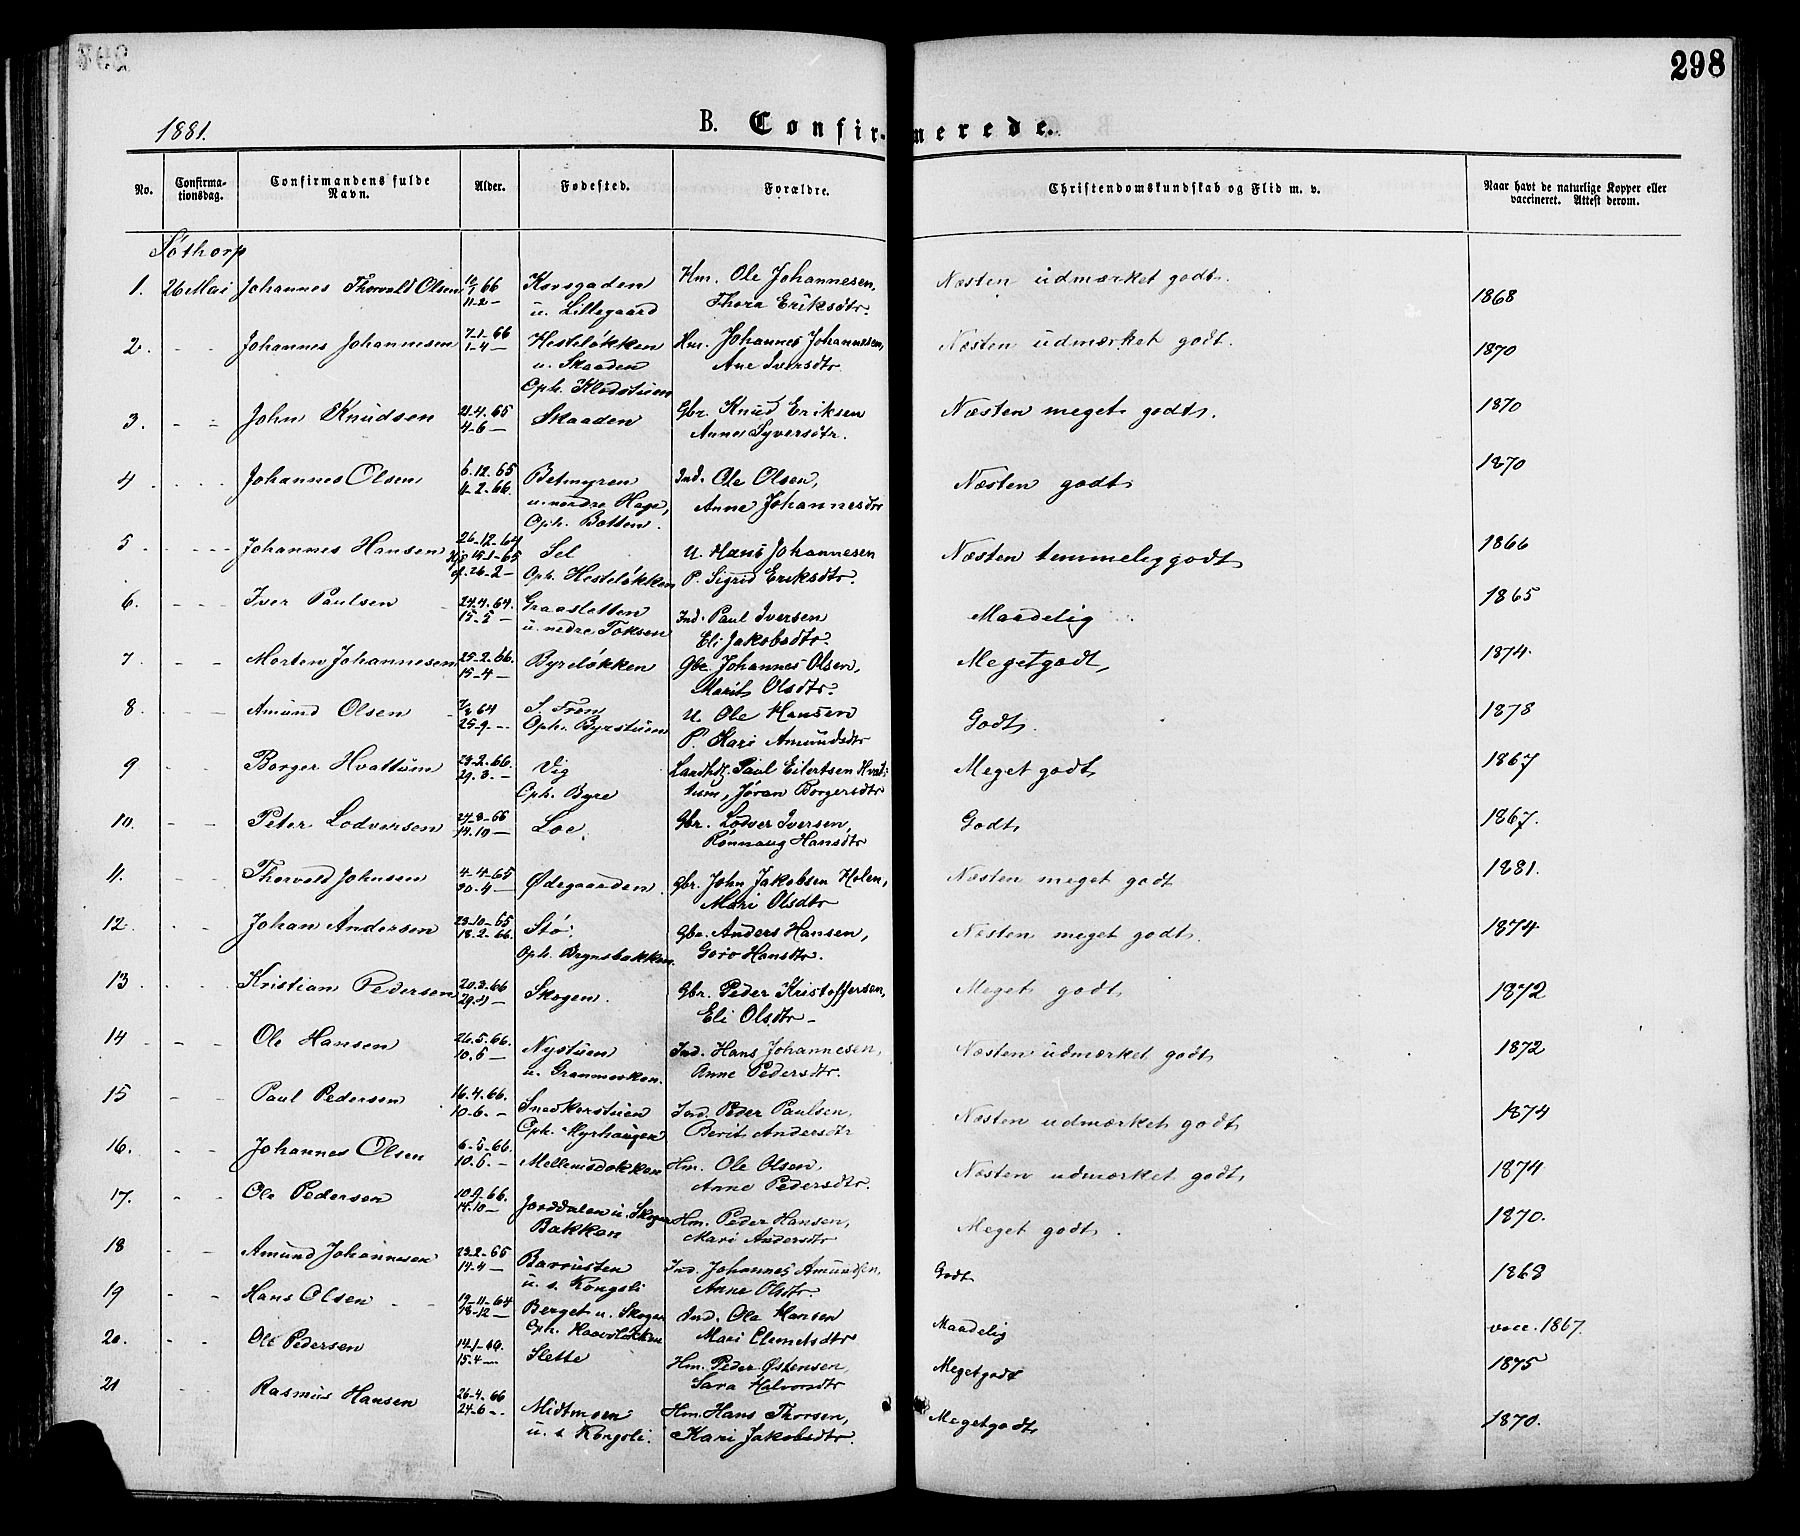 298
1881.
B. Confirmerede.
No.
Confirma-
tionsdag.
Confirmandens fulde
Navn.
Alder.
Fødested.
Forældre.
Christendomskundskab og Flid m. v.
Naar havt de naturlige Kopper eller
vaccineret. Attest derom.
Søthorp
1. 26 Mai Johannes Thorvald Olsen 66 Korsgaden Hm. Ole Johannesen, Næsten udmærket godt.
11-2- u. Lillegaard Thora Eriksdtr. 1868
2. - - Johannes Johannesen 7-1-66 Hesteløkken Hm. Johannes Johannesen, Næsten udmærket godt. 1870
1-4- u. Skaaden Ane Iversdtr
Oph. Klodstuen
3. - - John Knudsen 21.4.65 Skaaden Gbr. Knud Eriksen Næsten meget godt. 1870
4-6- Anne Syversdtr.
4 Johannes Olsen 6.12.65 Betmyren Ind. Ole Olsen, Næsten godt 1870
11-2-66. u. nordre Hage, Anne Johannesdtr
Oph. Botten.
5. - - - Johannes Hansen 26-12-64 Sel U. Hans Johannesen Næsten temmelig godt 1866
15-1-65 Oph. Hesteløkken P. Sigrid Eriksdtr.
26-2-
6. - - - Iver Paulsen 24.4.64. Graasletten Ind. Paul Iversen Maadelig 1865
15-5- u. nedre Toksen Eli Jakobsdtr.
7. - - Morten Johannesen 25-2.66. Byreløkken Gbr. Johannes Olsen, Meget godt, 1874.
15-4- Marit Olsdtr.
8. - - Amund Olsen 64 S. Fron U. Ole Hansen Godt. 1878
25.9.- Oph. Byrstuen P. Kari Amundsdtr
9 - - Borger Hvattum 23.2.66. Vig Landh. Paul Eilertsen Hvat- Meget godt 1867
29.3.- Oph. Byre tum, Jøran Borgersdtr
10. - - Peter Lodversen 27-8-66 Loe. Gbr. Lodver Iversen, Godt 1867.
14.10- Rønnaug Hansdtr
11. - - Thorvald Johnsen 4-4-65 Ødegaarden. Gbr. John Jakobsen Holen, Næsten meget godt 1881.
30.4- Mari Olsdtr
12. - - Johan Andersen 23-10-65 Stø. Gbr. Anders Hansen, Næsten meget godt. 1874
18.2-66. Oph. Brynsbakken. Goro Hansdtr.
13. Kristian Pedersen 20.3.66 Skogen. Gbr. Peder Kristoffersen, Meget godt 1872
29.3- Eli Olsdtr-
14 - - Ole Hansen 26.5.66. Nystuen Ind. Hans Johannesen, Næsten udmærket godt 1872
10.6- u. Granmorken. Anne Pedersdtr.
15 - - Paul Pedersen 16.4.66. Snedkerstuen Ind. Peder Paulsen, Næsten udmærket godt 1874
10-6.- Oph. Myrhaugen Berit Andersdtr
16. - - Johannes Olsen 6-5-66. Mellemsdokken Hm. Ole Olsen, Næsten udmærket godt, 1874
10.6.- Anne Pedersdtr.
17. - - Ole Pedersen 10.9.66. Jorddalen u. Skogen Hm. Peder Hansen, Meget godt. 1870.
14.10- Bakken Mari Andersdtr
18 - - Amund Johannesen 23.2-65 Barrusten Ind. Johannes Amundsen, Godt 1868
14-4- u. s. Kongsli Anne Olsdtr
19 - - Hans Olsen 19-11-64 Berget u. Skogen Ind. Ole Hansen Maadelig vacc. 1867.
18-12- Oph. Haavsløkken Mari Clemetsdtr
20. - - Ole Pedersen 14.1-66. Slette Hm. Peder Østensen, Meget godt 1875
15.4- Sara Halvorsdtr
21 - - Rasmus Hansen 26-4-66 Midtmoen Hm. Hans Thorsen, Meget godt 1870.
24-6-. u. s. Kongsli. Kari Jakobsdtr.